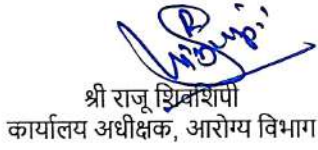 श्री राजू शिवशिपी
कार्यालय अधीक्षक, आरोग्य विभाग